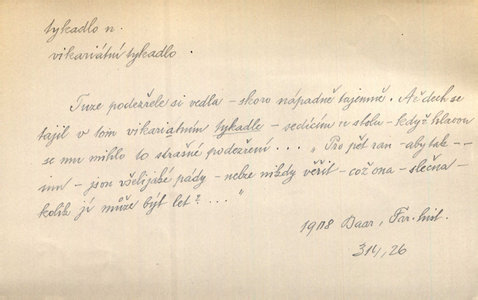 tykadlo n.
vikariátní tykadlo.
Tuze podezřele si vedla – skoro nápadně tajemně. Až dech se
tajil v tom vikariatním tykadle – sedícím u stolu – když hlavou
se mu mihlo to strašné podezření... „Pro pět ran – aby tak --
inu – jsou všelijaké pády – nelze nikdy věřit – což ona – slečna –
kolik jí může být let? ..."
1908 Baar, Far. hist.
314, 26